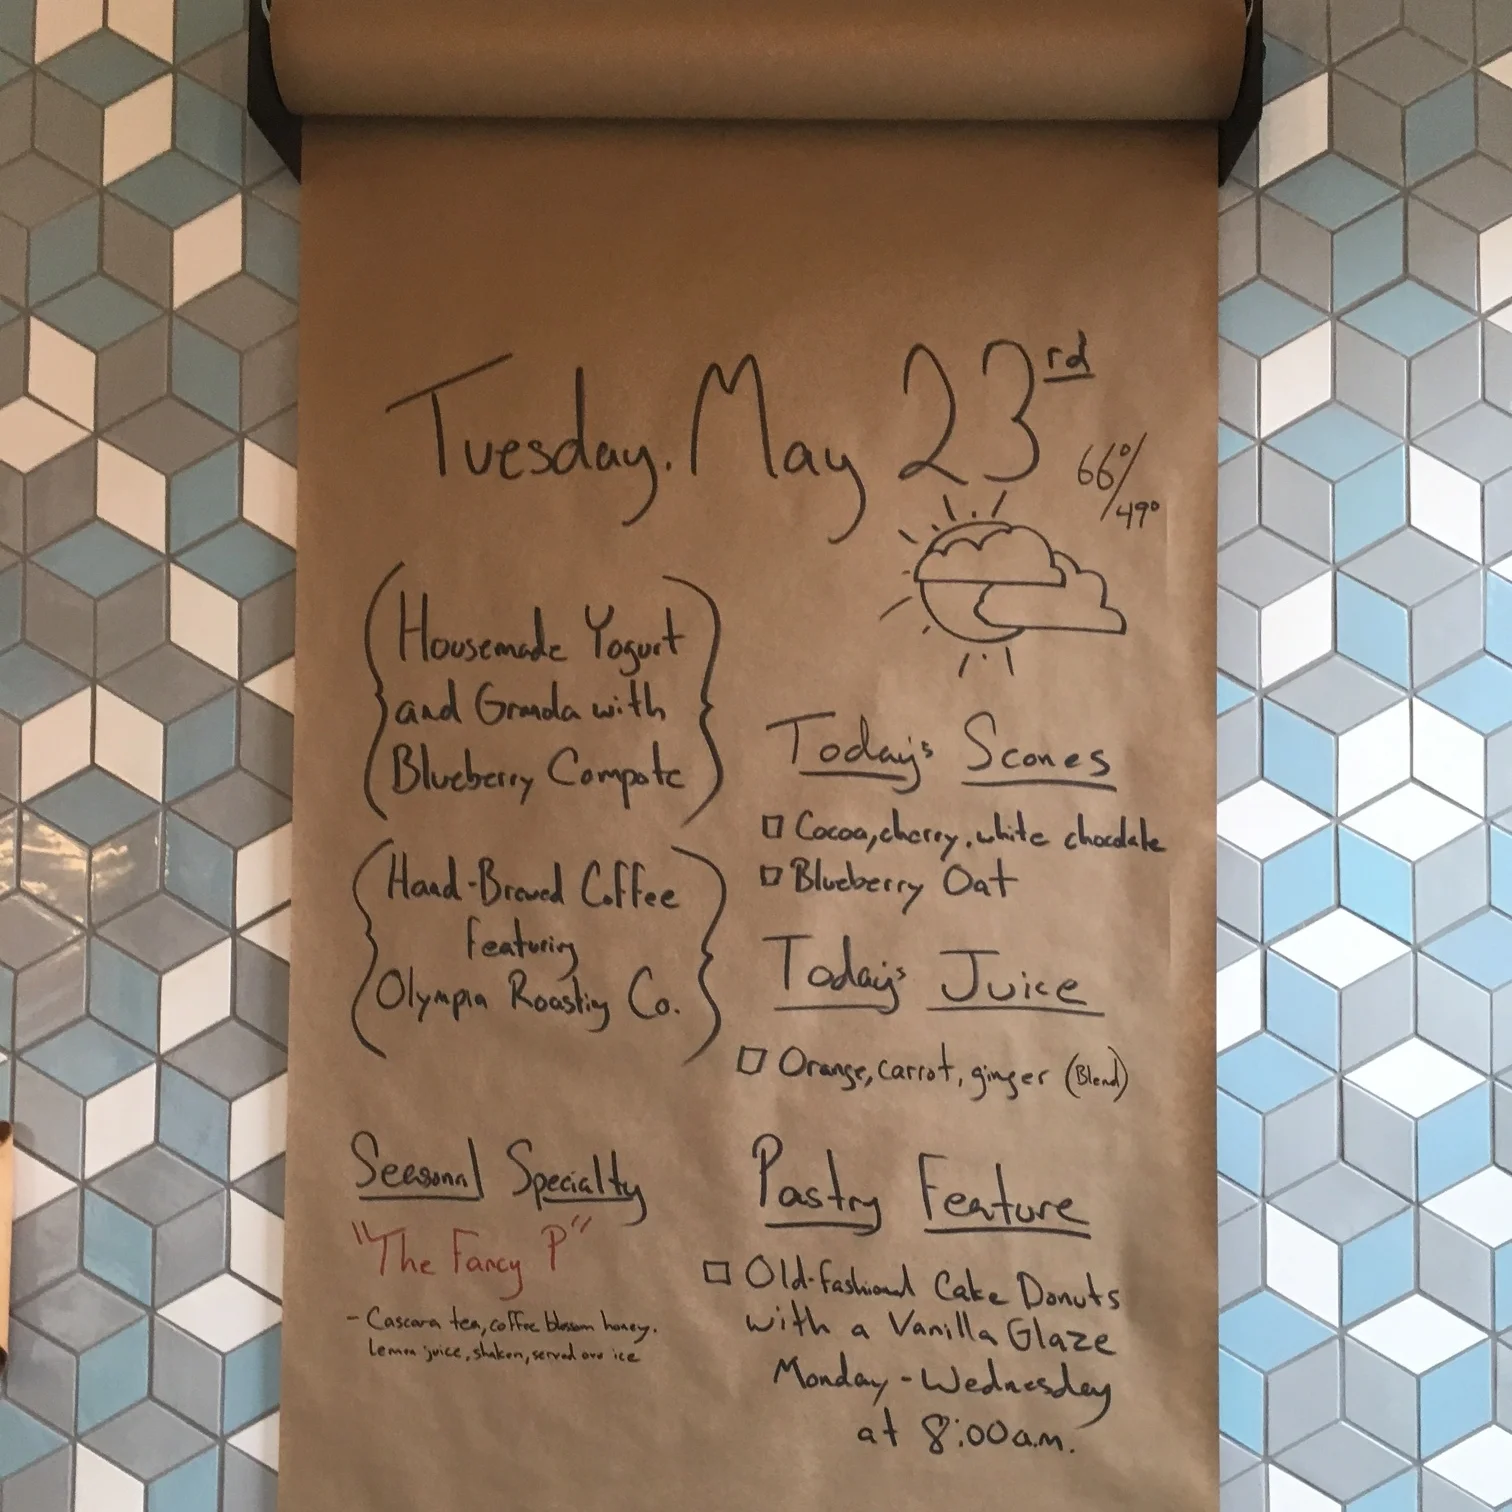 Tuesday, May 23rd
66°/49°
Housemade Yogurt
and Granola with
Blueberry Compote
Hand-Brewed Coffee
featuring
Olympia Roasting Co.
Seasonal Specialty
"The Fancy P"
- Cascara tea, coffee blossom honey,
lemon juice, shaken, served over ice
Today's Scones
Cocoa, cherry, white chocolate
Blueberry Oat
Today's Juice
Orange, carrot, ginger (Blend)
Pastry Feature
Old-fashioned Cake Donuts
with a Vanilla Glaze
Monday - Wednesday
at 8:00a.m.